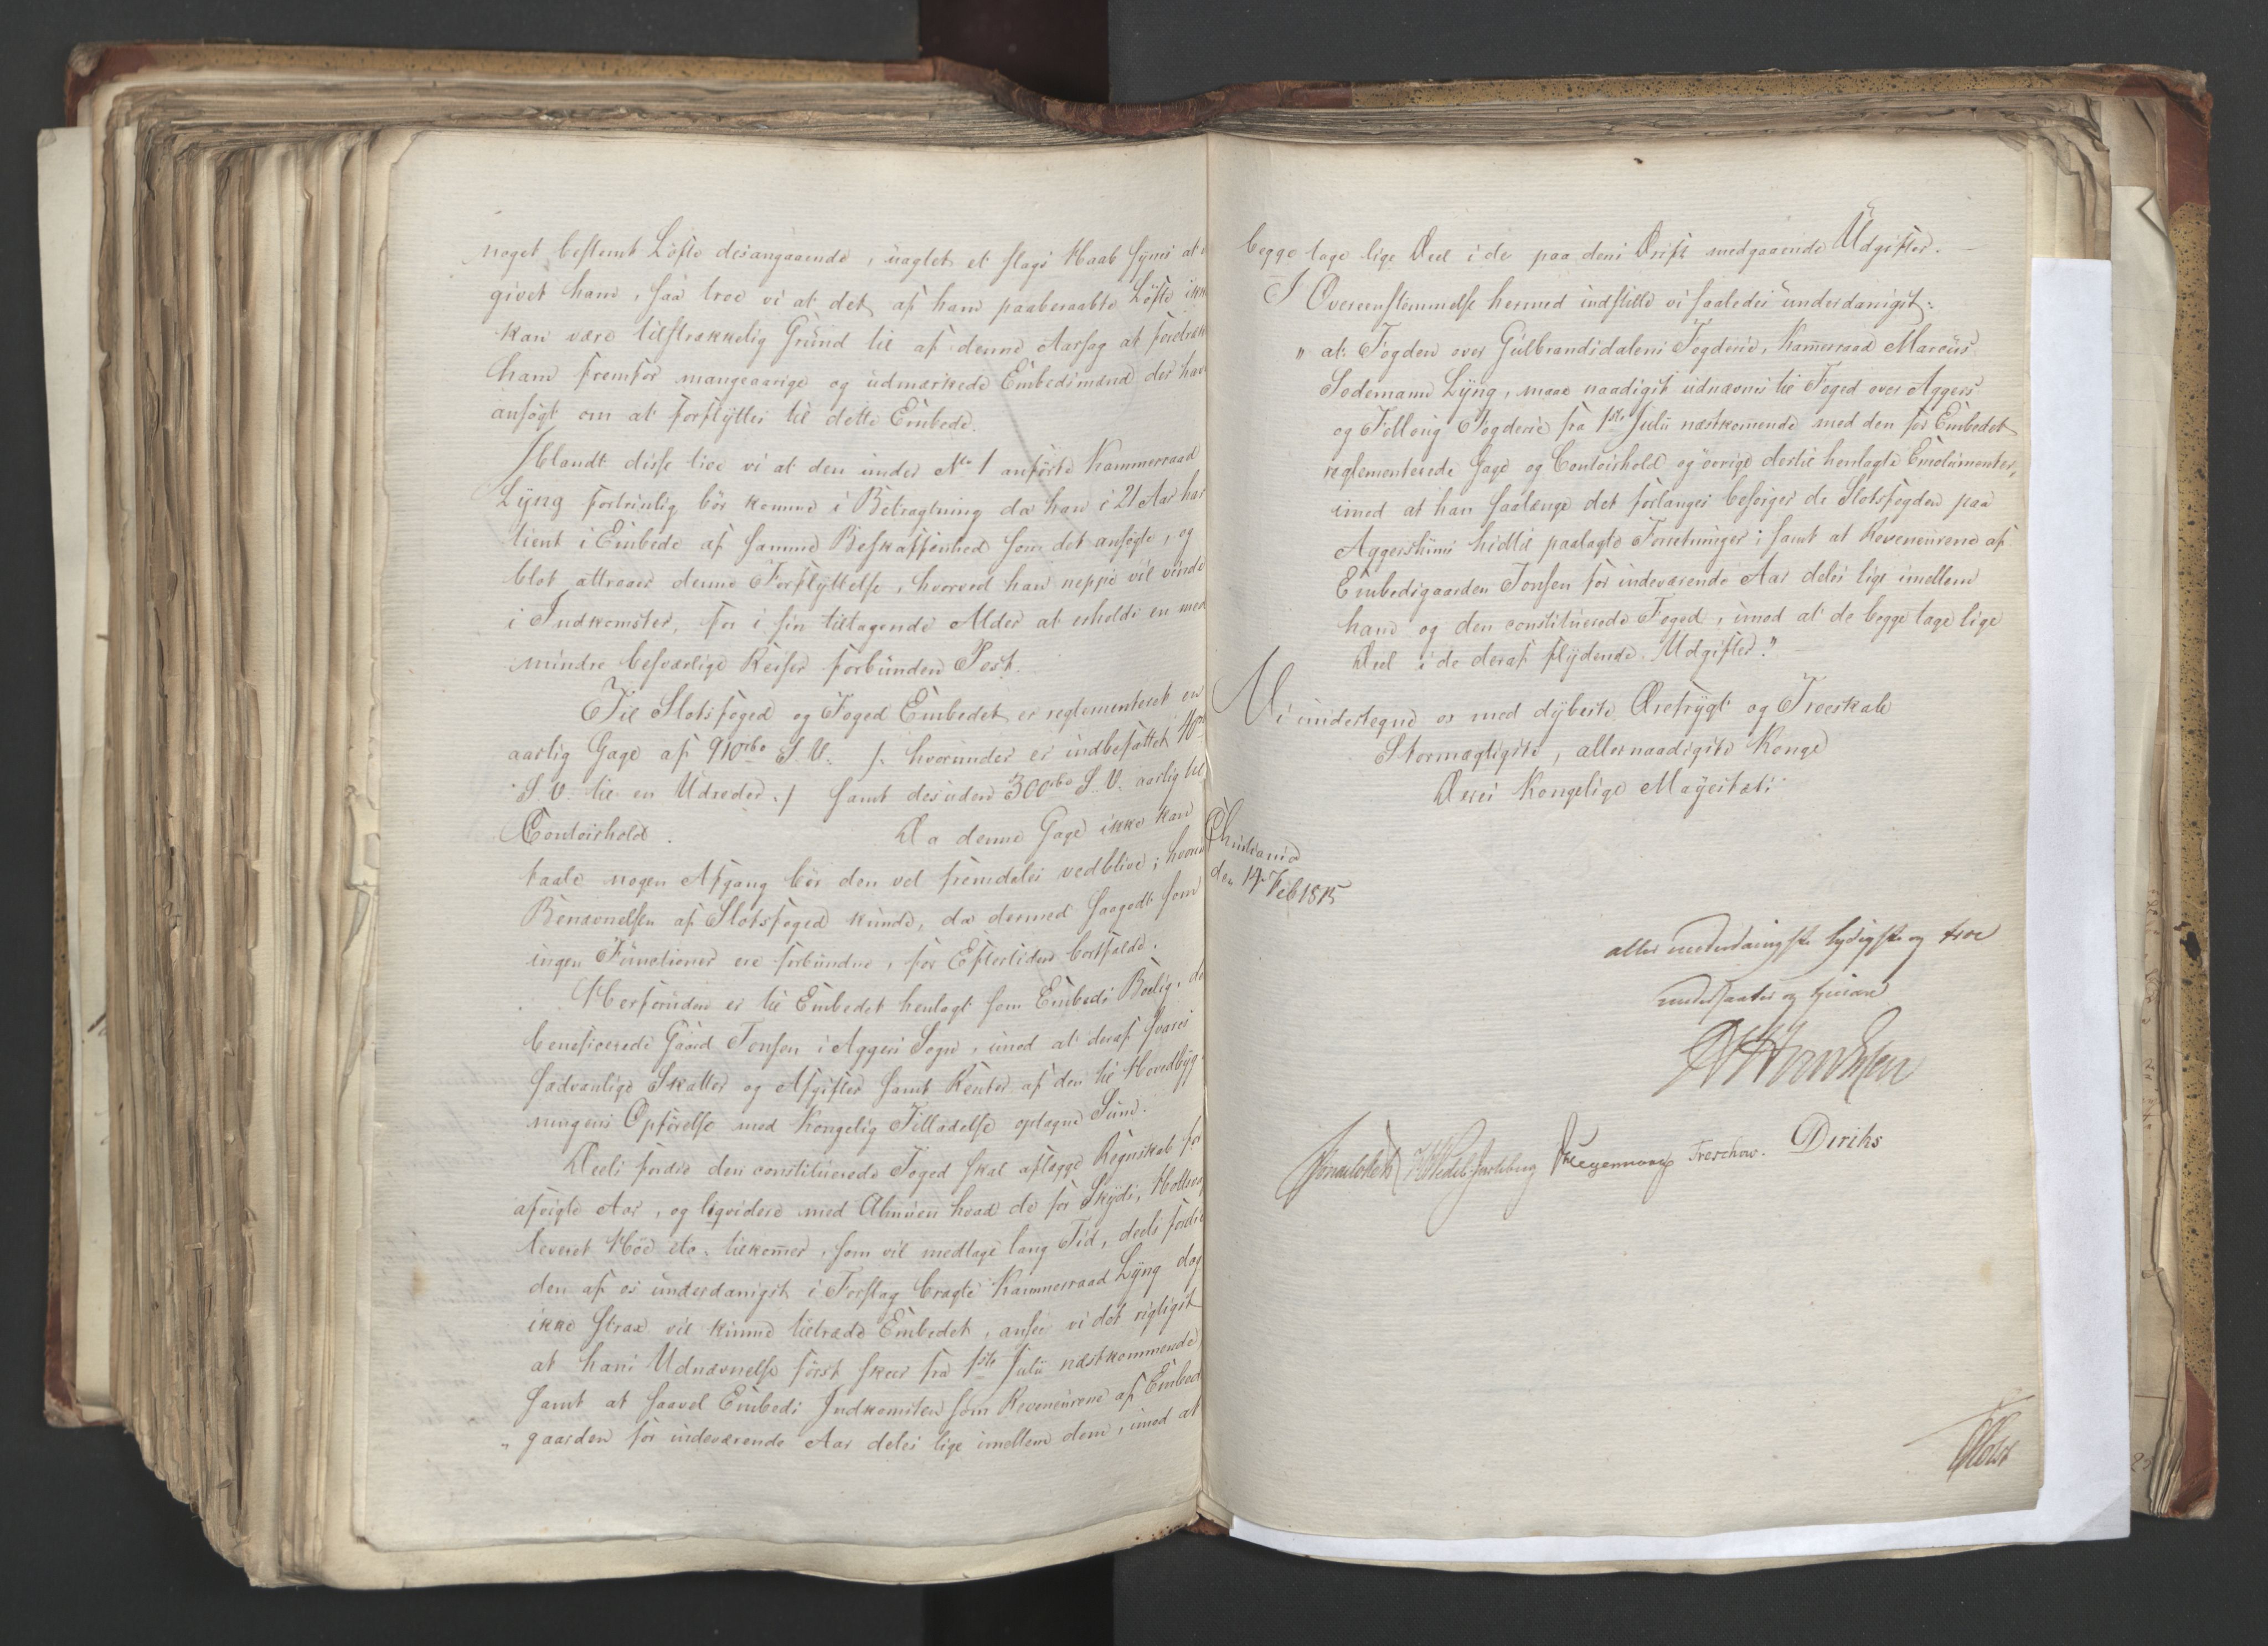 noget bestemt Löfte desangaaende, uagtet et slags Haab synes at v
givet ham, saa troe vi at det af ham paaberaabte Löfte ikk
kan være tilstrækkelig Grund til af denne Aarsag at foretræk
ham fremfor mangeaarige og udmærkede Embedsmænd der have
ansögt om at forflyttes til dette Embede.
Iblandt disse troe vi at den under No 1 anförte Kammerraad
Lyng fortrinlig bör komme i Betragtning da han i 21 Aar har
tient i Embede af samme Beskaffenhed som det ansögte, og
blot attraaer denne Forflyttelse, hvorved han neppe vil vinde
i Indkomster, for i sin tiltagende Alder at erholde en med
mindre besværlige Reiser forbunden Post.
Til Slotsfoged og Foged Embedet er reglementeret en
aarlig Gage af 910 rbd S. V. /: hvorunder er indbefattet 40 rbd
S. V. til en Udreder :/ samt desuden 300 rbd S. V. aarlig til
Contoirhold. Da denne Gage ikke kan
taale nogen Afgang bör den vel fremdeles vedblive; hvorimod
Benævnelsen af Slotsfoged kunde, da dermed saagodt som
ingen Functioner ere forbundne, for Eftertiden bortfalde.
Herforuden er til Embedet henlagt som Embeds Bolig, de
beneficerede Gaard Tonsen i Aggers Sogn, imod at deraf svares
sædvanlige Skatter og Afgifter samt Renter af den til Hovedbyg-
ningens Opförelse med Kongelig Tilladelse optagne Sum.
Deels fordie den constituerede Foged skal aflægge Regnskab for
afvigte Aar, og liqvidere med Almuen hvad de for Skyds,
leveret Höe etc. tilkommer, som vil medtage lang Tid, deels fordie
den af os underdanigst i Forslag bragte Kammerraad Lyng dog
ikke strax vil kunne tiltræde Embedet, ansee vi det rigtigst
at hans Udnævnelse först skeer fra 1ste Julii næstkommende
samt at saavel Embeds Indkomsten som Revenuerne af Embeds
gaarden for indeværende Aar deles lige imellem dem, imod at
begge tage lige Deel i de paa dens Drift medgaaende Udgifter.
I Overeensstemmelse hermed indstille vi saaledes underdanigst:
" at Fogden over Gulbrandsdalens Fogderie, Kammerraad Marcus
Sodemann Lyng, maae naadigst udnævnes til Foged over Aggers
og Folloug Fogderie fra 1ste Julii næstkommende med den for Embedet
reglementerede Gage og Contoirhold og övrige dertil henlagte Emolumenter,
imod at han saalænge det forlanges besörger de Slotsfogden paa
Aggershuus hidtil paalagte Forretninger; samt at Revenuerne af
Embedsgaarden Tonsen for indeværende Aar deles lige imellem
ham og den constituerede Foged, imod at de begge tage lige
Deel i de deraf flydende Udgifter."
Vi undertegne os med dybeste Ærefrygt og Troeskab
Stormægtigste, allernaadigste Konge
Deres Kongelige Mayestæts
Christiania
den 14 Feb 1815
aller underdanigste lydigste og troe
undersaatter og tjenere
Sommerhielm HWedel-Jarlsberg Treschow. Diriks
Holst